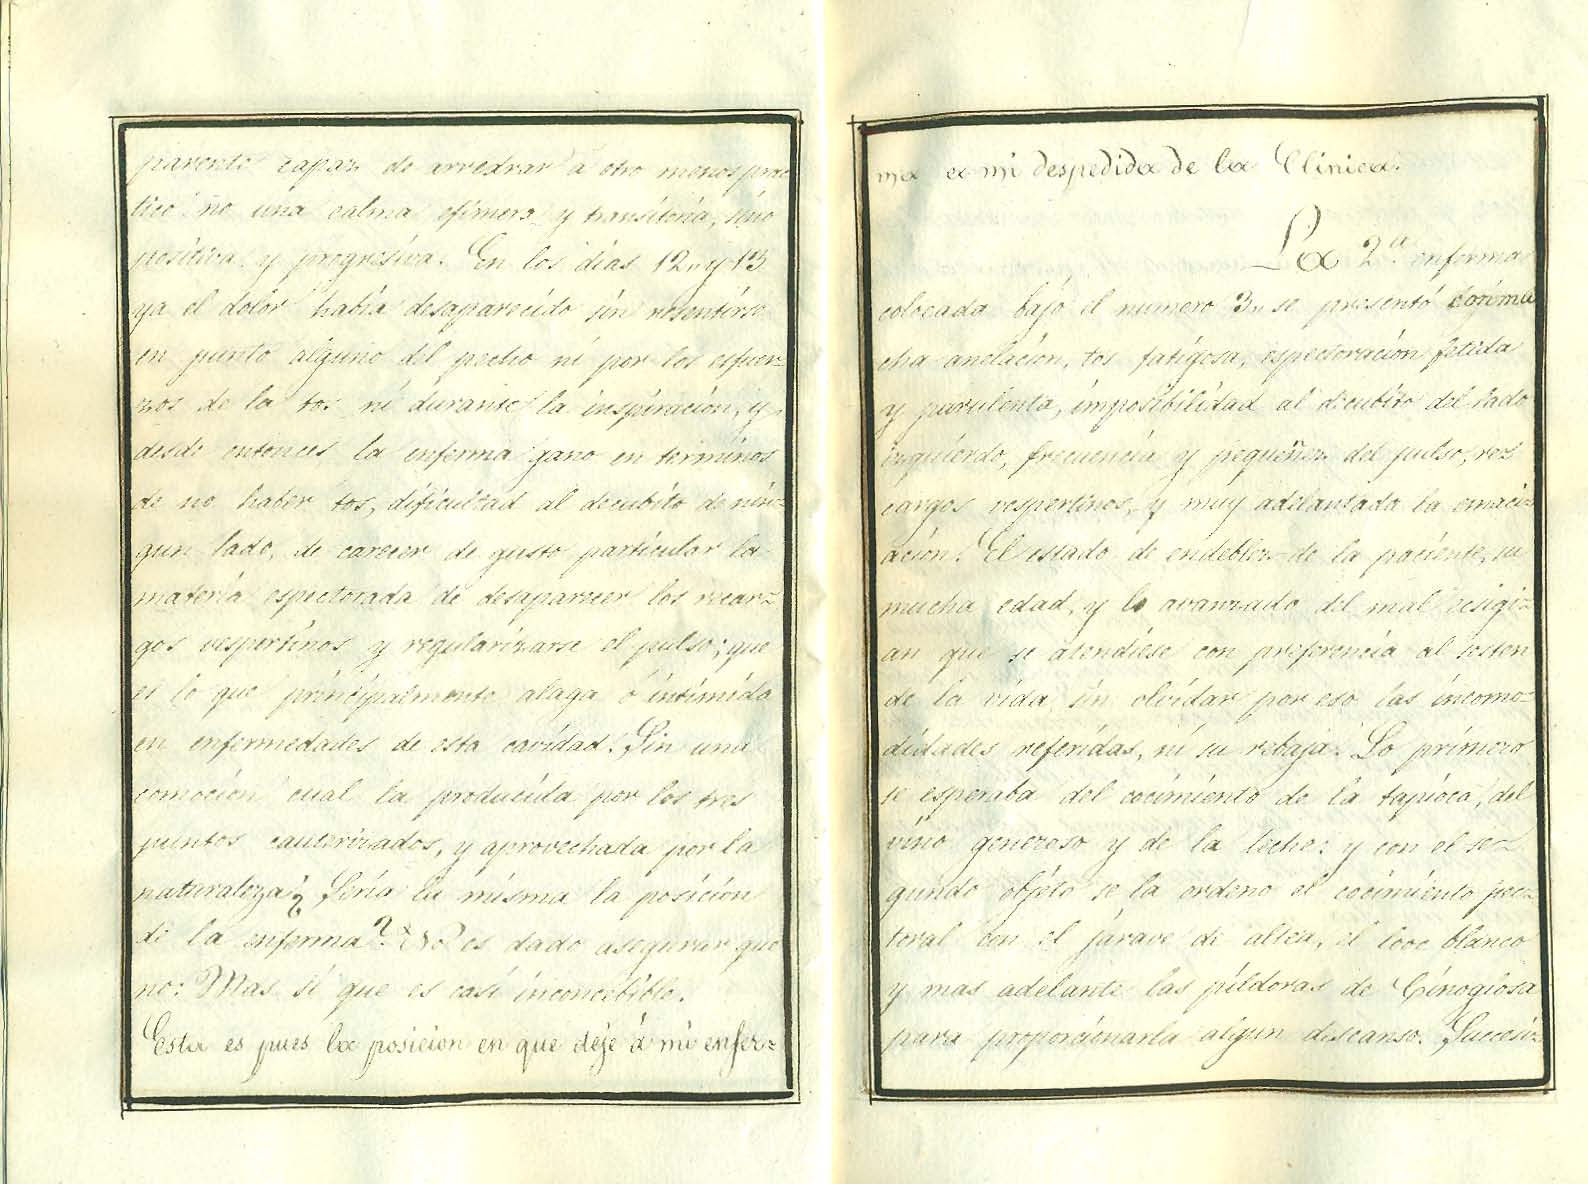 parente capaz de arredrar á otro menos prac
tico: no una calma efimera y transitoria, sino
positiva y progresiva. En los dias 12 y 13
ya el dolor habia desaparecido sin resentirse
en punto alguno del pecho ni por los esfuer-
zos de la tos ni durante la inspiracion, y
desde entonces la enferma gano en terminos
de no haber tos, dificultad al decubito de nin-
gun lado, de carecer de gusto particular la
materia espectorada de desaparecer los recar-
gos vespertinos y regularizarse el pulso; que
es lo que principalmente alaga ó intimida
en enfermedades de esta cavidad. Sin una
comocion cual la producida por los tres
puntos cauterizados, y aprovechada por la
naturaleza ¿ Seria la misma la posicion
de la enferma? No es dado asegurar que
no: Mas si que es casi inconcebible.
Esta es pues la posicion en que deje á mi enfer-
ma a mi despedida de la Clinica.
La 2ª enferma
colocada bajo el numero 3 se presentó con mu
cha anelacion, tos fatigosa, espectoracion fetida
y purulenta, imposibilidad al decubito del lado
izquierdo, frecuencia y pequeñez del pulso, re-
cargos vespertinos, y muy adelantada la emaci-
acion. El estado de endeblez de la paciente, su
mucha edad, y lo avanzado del mal ecsigi-
an que se atendiese con preferencia al sosten
de la vida sin olvidar por eso las incomo-
didades referidas, ni su rebaja. Lo primero
se esperaba del cocimiento de la tapioca, del
vino generoso y de la leche: y con el se-
gundo objeto se la ordeno el cocimiento pec-
toral con el jarave de altea, el looc blanco
y mas adelante las pildoras de Cinoglosa
para proporcionarla algun descanso. Succesi-